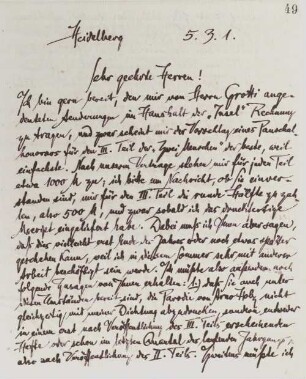 49
Heidelberg 5. 3. 1.
Sehr geehrte Herren!
Ich bin gern bereit, den mir von Herrn ange-
deuteten Aenderungen im Haushalt der "Insel" Rechnung
zu tragen, und zwar scheint mir der Vorschlag eines Pauschal-
honorars für den III. Teil der "Zwei Menschen" der beste, weil
einfachste. Nach unserm Vertrage stehen mir für jeden Teil
etwa 1000 M zu; ich bitte um Nachricht, ob Sie einver-
standen sind, mir für den III. Teil die runde Hälfte zu zah-
len, also 500 M, und zwar sobald ich das druckfertige
Mscrpt eingeliefert habe. Dabei muß ich Ihnen aber sagen,
daß dies vielleicht erst Ende des Jahres oder noch etwas später
geschehen kann, weil ich in diesem Sommer sehr mit andrer
Arbeit beschäftigt sein werde. Ich müßte aber außerdem noch
folgende Zusagen von Ihnen erhalten: 1) daß Sie auch unter
Umständen bereit sind, die Parodie von Arno Holz nicht
gleichzeitig mit meiner Dichtung abzudrucken, sondern entweder
in einem erst nach Veröffentlichung des III. Teils erscheinenden
Hefte oder schon im letzten Quartal des laufenden Jahrgangs,
also nach Veröffentlichung des II. Teils. Zweitens müßte ich